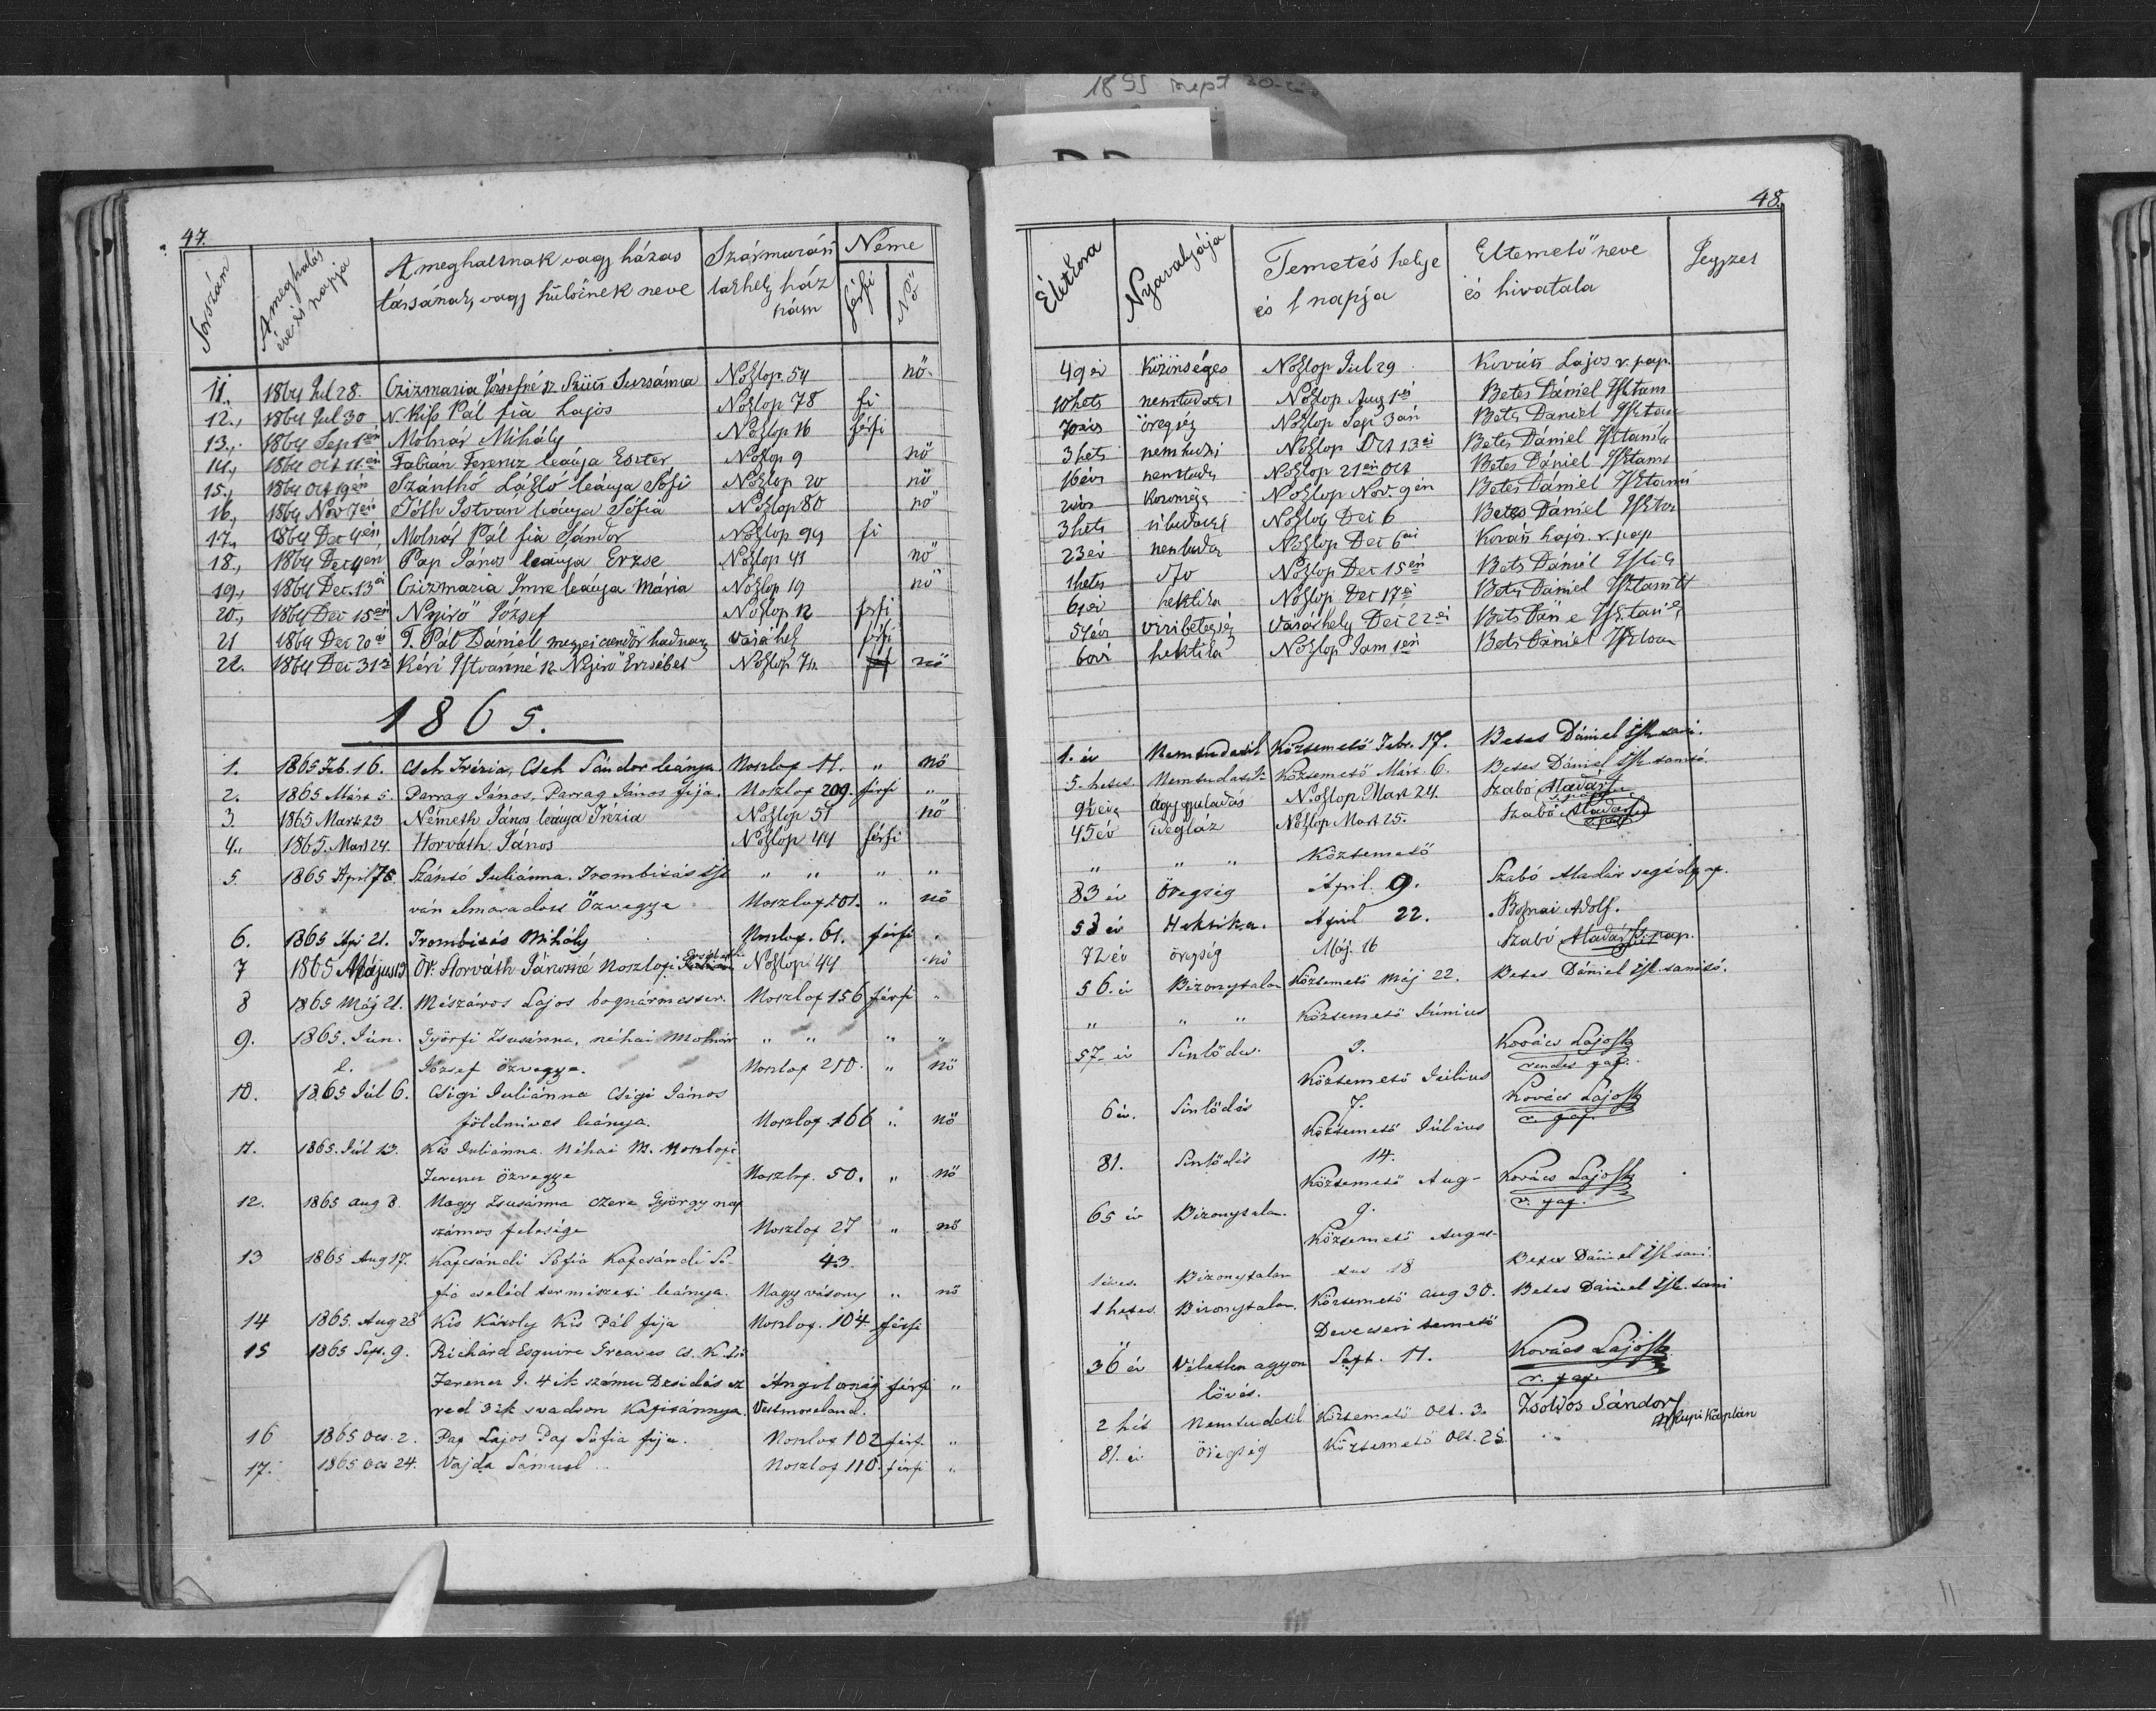 1895 szept 30-
47.
Sorszám | A meghalás éve és napja | A meghaltnak vagy házas társának, vagy szülőinek neve | Származás lakhely ház szám | Neme férfi | Nő
11. 1864 Jul 28. Czizmazia Józsefné sz Szűts Zsuzsánna Noszlop 54 nő.
12., 1864 Jul 30 N. Kiss Pál fia Lajos Noszlop 78 fi
13., 1864 Sep 1én Molnár Mihály Noszlop 16 férfi
14., 1864 Oct 11én Fabián Ferencz leánya Eszter Noszlop 9 nő
15., 1864 Oct 19én Szánthó László leánya Sófi Noszlop 20 nő
16, 1864 Nov 7én Tóth Istvan leánya Sófia Noszlop 80 nő
17, 1864 Dec 4én Molnár Pál fia Sándor Noszlop 94 fi
18., 1864 Dec 4én Pap János leánya Erzse Noszlop 41 nő
19., 1864 Dec. 13á Czizmazia Imre leánya Mária Noszlop 19 nő
20., 1864 Dec 15én Nyirő József Noszlop 12 férfi
21 1864 Dec 20 T. Pál Dániel megyei csendőr hadnagy Vásáhely férfi
22. 1864 Dec 31 Kéri Istvanné sz Nyirő Erzsébet Noszlop 71. nő
1865.
1. 1865 Feb. 16. Cseh Trézia, Cseh Sándor leánya. Noszlop 11. " nő
2. 1865 Márt 5. Parrag János, Parrag János fija. Noszlop 209. férfi "
3. 1865 Mart 23 Németh János leánya Trézia Noszlop 51 nő
4., 1865. Mart 24. Horváth János Noszlop 44 férfi
5. 1865 April 7 Szántó Juliánna. Trombitás Ist " " " "
ván elmaradott Özvegye Noszlop 201. " nő
6. 1865 Apr 21. Trombitás Mihály Noszlop. 61. férfi "
7 1865 Május 15 Öv. Horváth Jánosné Noszlopi Noszlop 44 nő
8 1865 Máj 21. Mészáros Lajos bognármester. Noszlop 156 férfi "
9. 1865. Jún. Györfi Zsusánna, néhai Molnár " " " "
2. József özvegye. Noszlop 210. " nő
10. 1865 Júl 6. Csigi Juliánna Csigi János
földmives leánya. Noszlop 166 " nő
11. 1865. Júl 13. Kis Juliánna Néhai M. Noszlopi
Ferencz özvegye Noszlop. 50. " nő
12. 1865 Aug 8. Nagy Zsusánna Czere György nap
számos felesége Noszlop 27 " nő
13 1865 Aug 17. Kapcsándi Sófia Kapcsándi Só- 43.
fia cseléd természeti leánya. Nagy vásony " nő
14 1865. Aug 28 Kis Károly Kis Pál fija Noszlop. 104. férfi
15 1865 Sept. 9. Richárd Esquire Greaves cs. K.
Ferencz J. 4ik számu Dzsidás ez Angol ország férfi "
red 3ik svadron Kapitánnya. Vestmoreland.
16 1865 Oct. 2. Pap Lajos Pap Sófia fija. Noszlop 102 férf. "
17. 1865 Oct 24. Vajda Sámuel Noszlop 110. férfi "
48.
Életkora | Nyavalyája | Temetés helye és napja | Eltemető neve és hivatala | Jegyzet
49 év Közönséges Noszlop Jul 29 Kováts Lajos r. pap.
10 hets nemtudni Noszlop Aug 1én Betes Dániel
70 éves öregség Noszlop Sep 3án Bets Daniel
3 hets nemtudni Noszlop Oct 13 Betes Dániel
16 éves nemtudn Noszlop 21én Oct Betes Dániel
Noszlop Nov. 9én Betes Dániel
3 hets Noszlop Dec 6 Betes Dániel
23 év nemtudn Noszlop Dec 6 Kováts Lajos. r. pap
1 hetes Noszlop Dec 15én Bets Dániel
61 év hektika Noszlop Dec 17 Bets Daniel
54 éves vizibetegség Vásárhely Dec 22 Bets
60 hektika Noszlop Jan 1én Bets Dániel
1. év Nemtudatik Köztemető Febr. 17. Betes Dániel
5. hetes Nemtudatik Köztemető Márt. 6. Betes Dániel Isk tanitó.
9½ éves agy gyuladás Noszlop Mart 24. Szabó Aladár
45 év ideg láz Noszlop Mart 25. Szabó Aladár
" " " Köztemető
83 év Öregség April. 9. Szabó Aladár segédpap.
53 év Hektika. April 22. Adolf.
72 év öregség Máj. 16 Szabó Aladár pap.
56. év Bizonytalan Köztemető Máj 22. Betes Dániel Isk. tanitó.
" " " Köztemető Június
57. év Sinlődés. 3. Kovács Lajos
rendes pap.
Köztemető Július
6 év. Sinlődés 7. Kovács Lajos
r. pap.
Köztemető Július
81. Sinlődés 14.
Köztemető Aug- Kovács Lajos
r. pap.
65 év Bizonytalan. 9.
Köztemető Augus-
1 éves. Bizonytalan tus 18 Betes Dániel Isk. tani.
1 hetes. Bizonytalan. Köztemető Aug 30. Betes Dániel Isk. tani
" Devecseri temető
36 év Véletlen agyon Sept. 11. Kovács Lajos
lövés. r. pap.
2 hét Nemtudatik Köztemető Oct. 3. Zsoldos Sándor
kaplán
81. év Öregség Köztemető Oct. 25. "